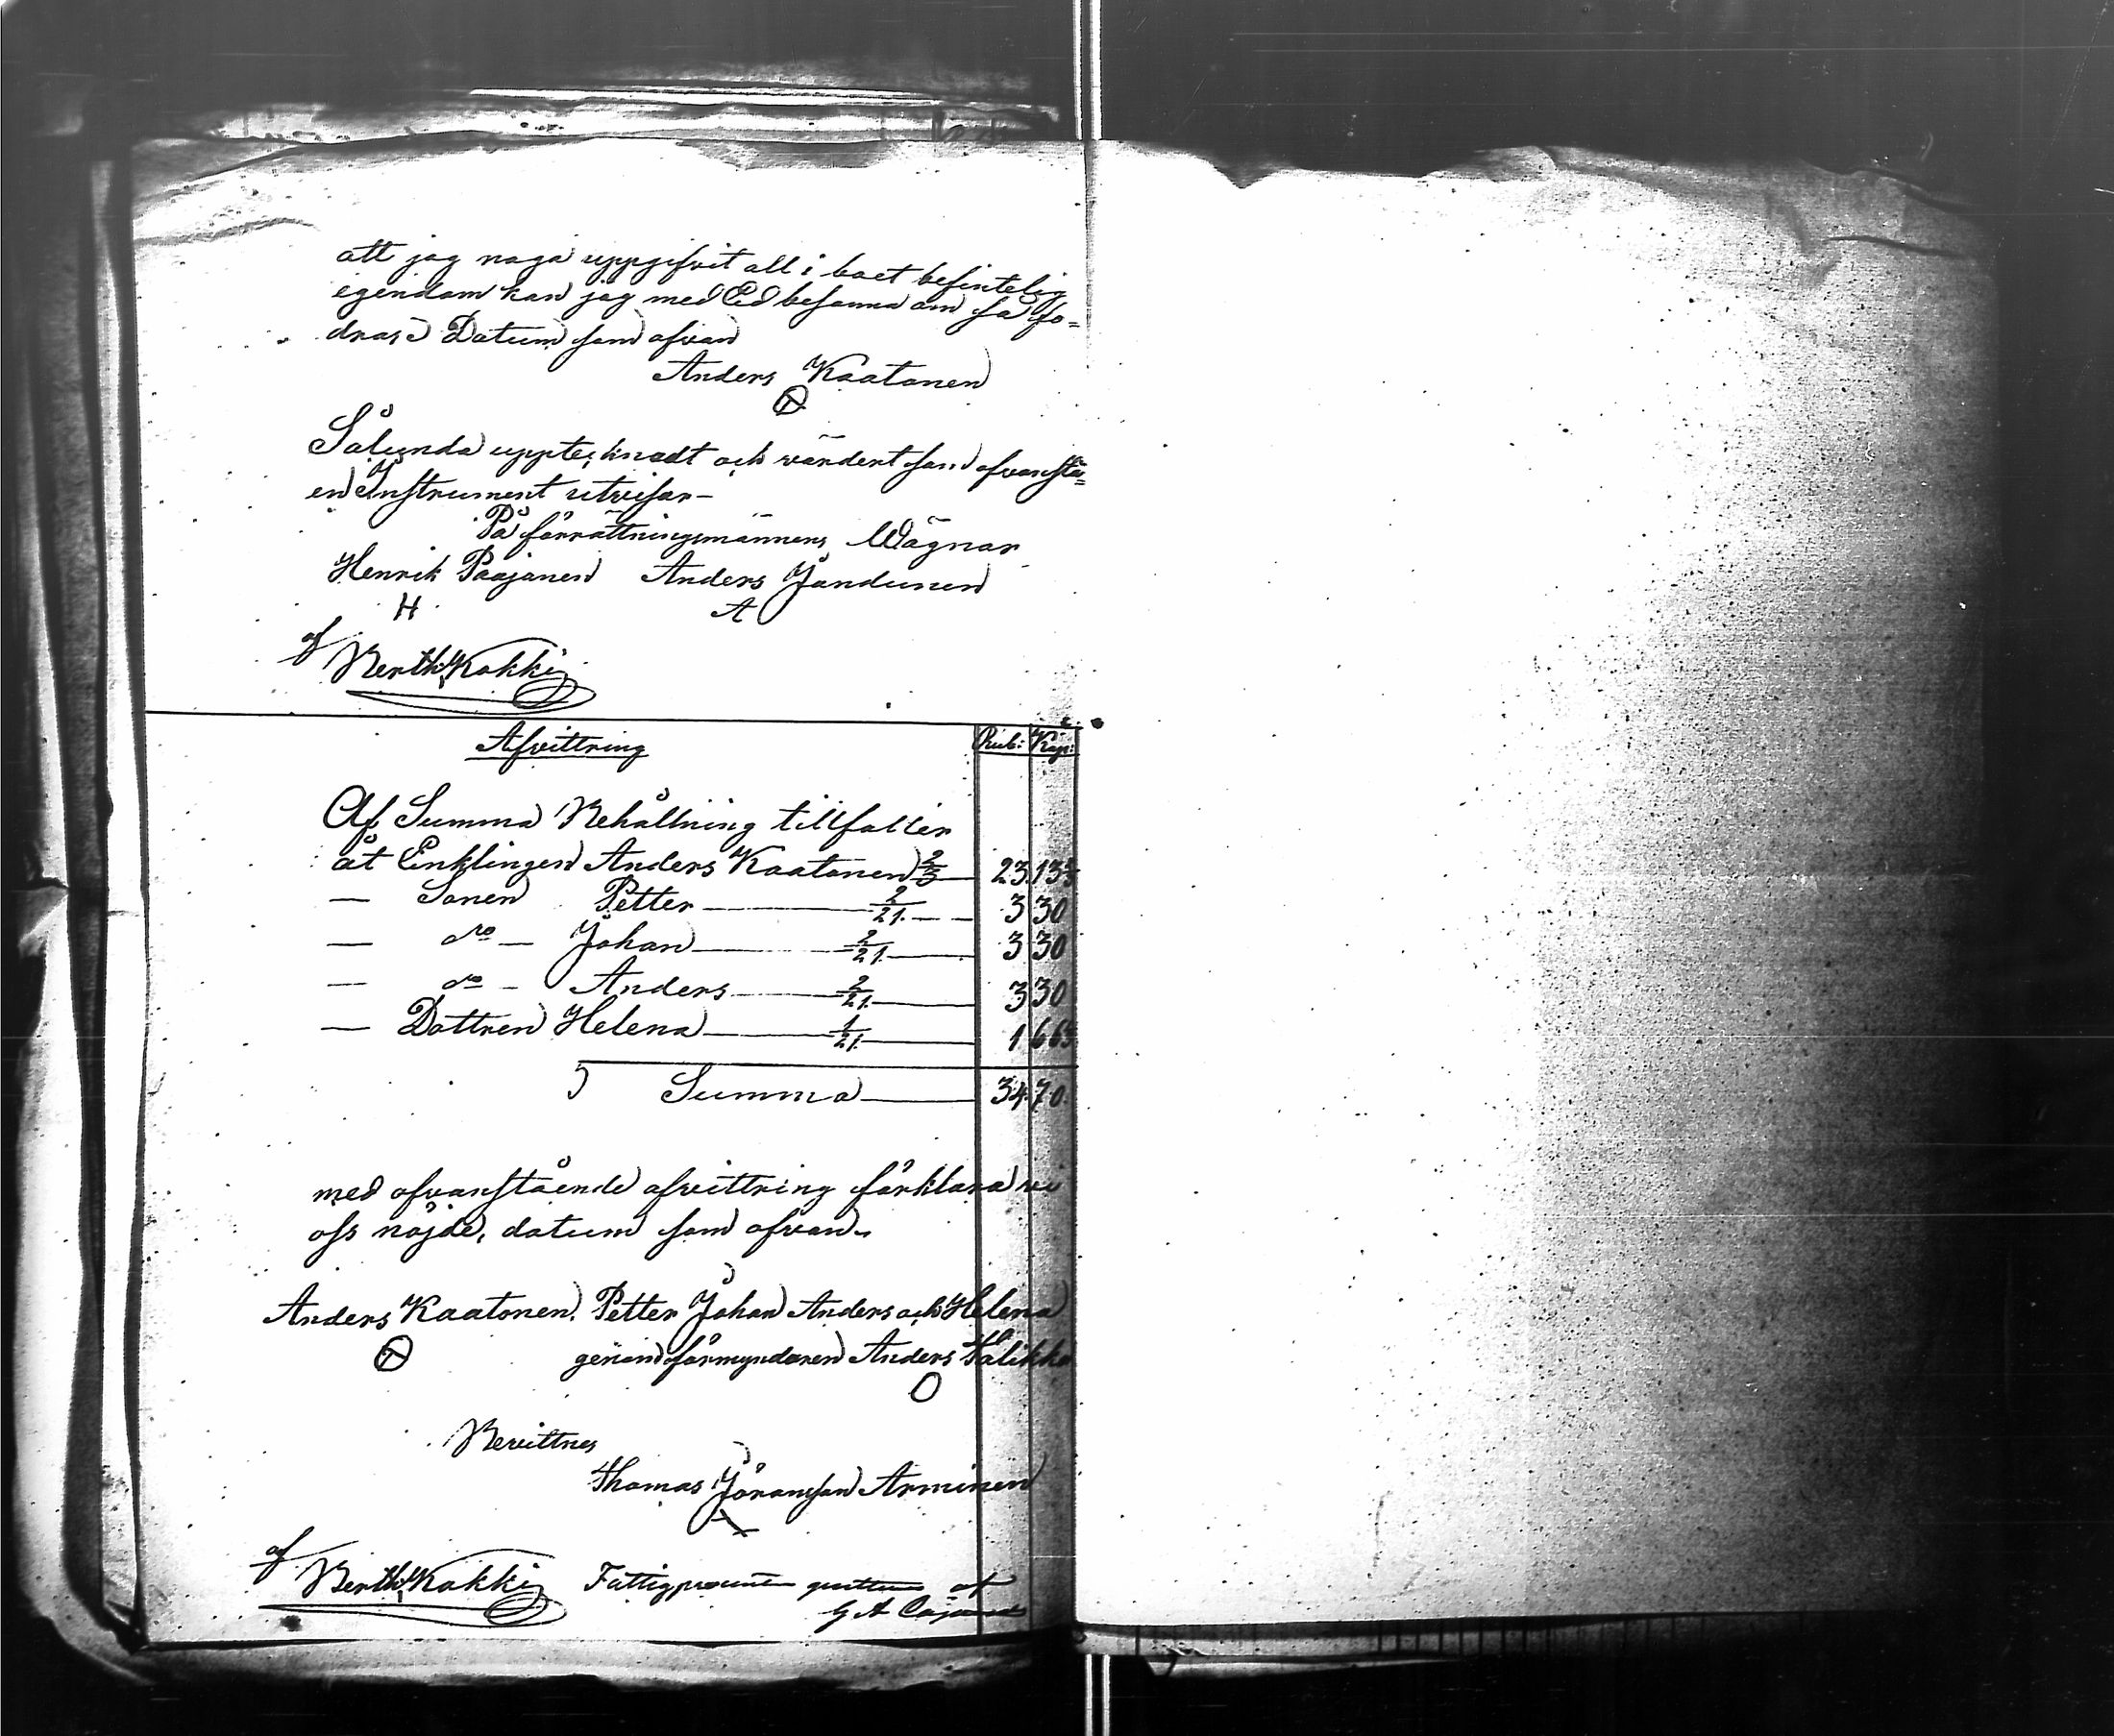 att jag noga uppgifvit all i boet befintelig
egendom kan jag med Ed besanna om så fo=
dras Datum som ofvan
Anders Kaatonen
Sålunda upptecknadt och värdert som ofvanstå=
end Instrument utvisar-
På förrättningsmännens Wägnar
Henrik Paajanen Anders Jandunen
H A
af
Berth Kokki
Afvittring Rub: Kop:
Af Summa Behållning tillfaller
åt Enklingen Anders Kaatonen 2/3 23.13 1/3
— Sonen Petter — 2/21. — 3 30
— dro — Johan — 2/21. — 3 30
— do — Anders — 2/21. — 3 30
— Dottren Helena — 1/21. — 1 66
Summa — 34.70.
med ofvanstående afvittring förklara vi
oss nöjde, datum som ofvan.
Anders Kaatonen. Petter Johan Anders och Helena
genom förmyndaren Anders Halikka
O
Bevittnes
Thomas Jöransson Arminen
af
Berth Kokki Fattigprocenten qvitteras af
G A